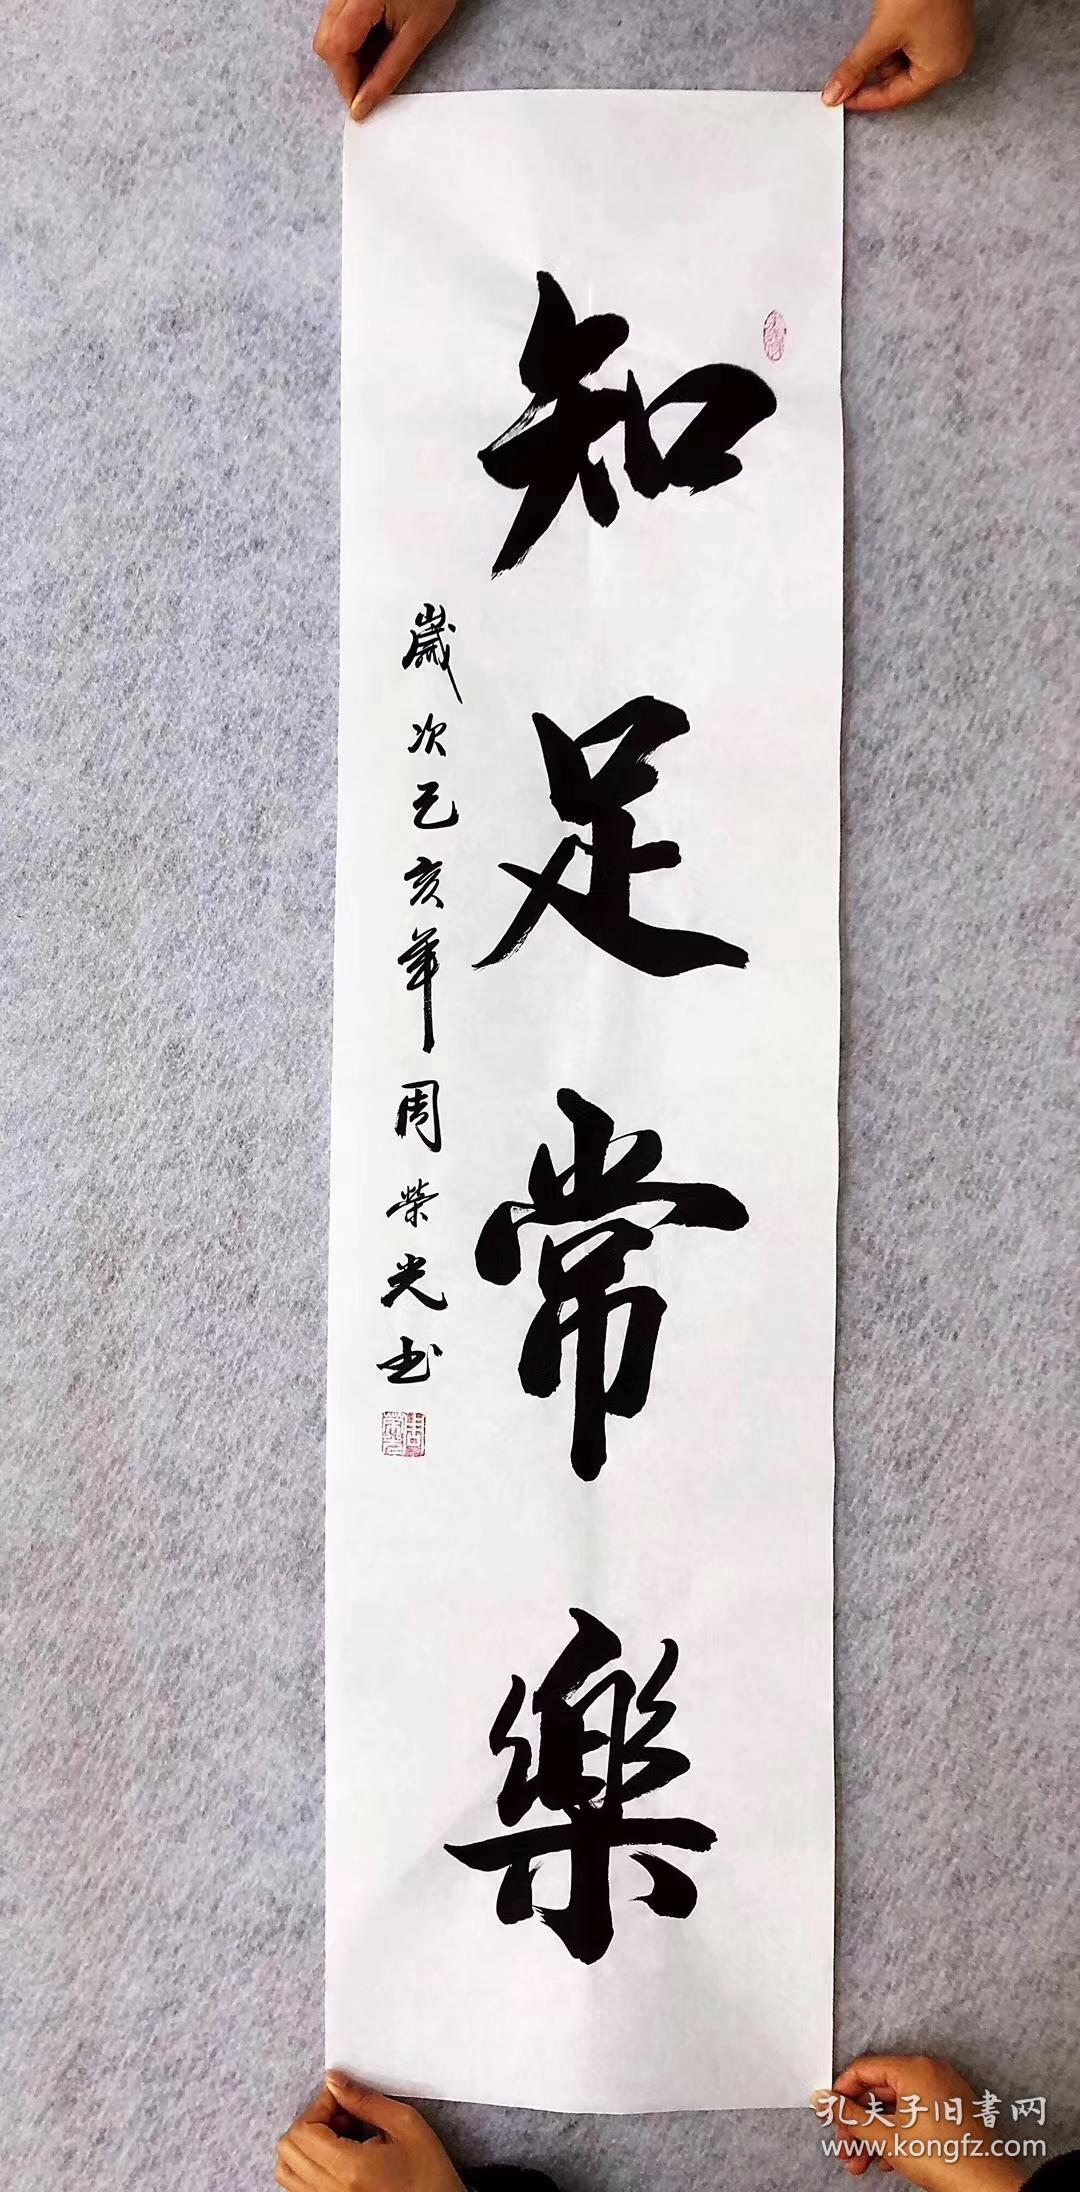 知足常樂
歲次己亥年周榮光书
孔夫子旧書网
www.kongfz.com